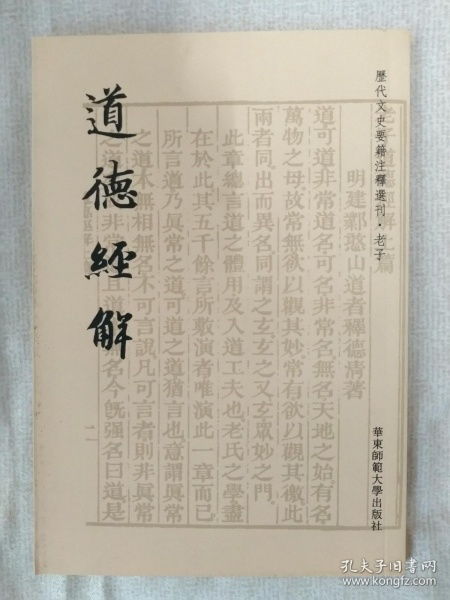 歷代文史要籍注釋選刊·老子
道德經解
華東師範大學出版社
明建鄴憨山道者釋德清著
道可道非常道名可名非常名無名天地之始有名
萬物之母故常無欲以觀其妙常有欲以觀其徼此
兩者同出而異名同謂之玄玄之又玄眾妙之門
此章總言道之體用及入道工夫也老氏之學盡
在於此其五千餘言所敷演者唯演此一章而已
所言道乃眞常之道可道之道猶言也意謂眞常
之道本無相無名不可言說凡可言者則非眞常
之道
非常
且道
名今既强名曰道是
二
孔夫子旧书网
www.kongfz.com